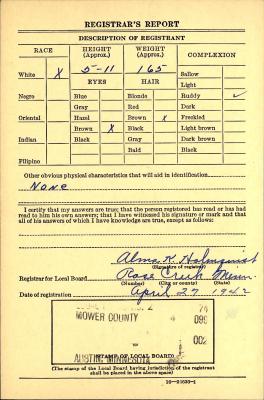 REGISTRAR'S REPORT
DESCRIPTION OF REGISTRANT
RACE HEIGHT (Approx.) WEIGHT (Approx.) COMPLEXION
White X 5-11 165 Sallow
EYES HAIR Light
Negro Blue Blonde Ruddy ✓
Gray Red Dark
Oriental Hazel Brown X Freckled
Brown X Black Light brown
Indian Black Gray Dark brown
Bald Black
Filipino
Other obvious physical characteristics that will aid in identification
None
I certify that my answers are true; that the person registered has read or has
had read to him his own answers; that I have witnessed his signature or mark and that
all of his answers of which I have knowledge are true, except as follows:
Alma K. Holmquist
(Signature of registrar)
Registrar for Local Board Rose Creek Minn.
(Number) (City or county) (State)
Date of registration April 27 1942
MOWER COUNTY
AUSTIN, MINNESOTA
(STAMP OF LOCAL BOARD)
(The stamp of the Local Board having jurisdiction of the registrant
shall be placed in the above space)
16-21630-1